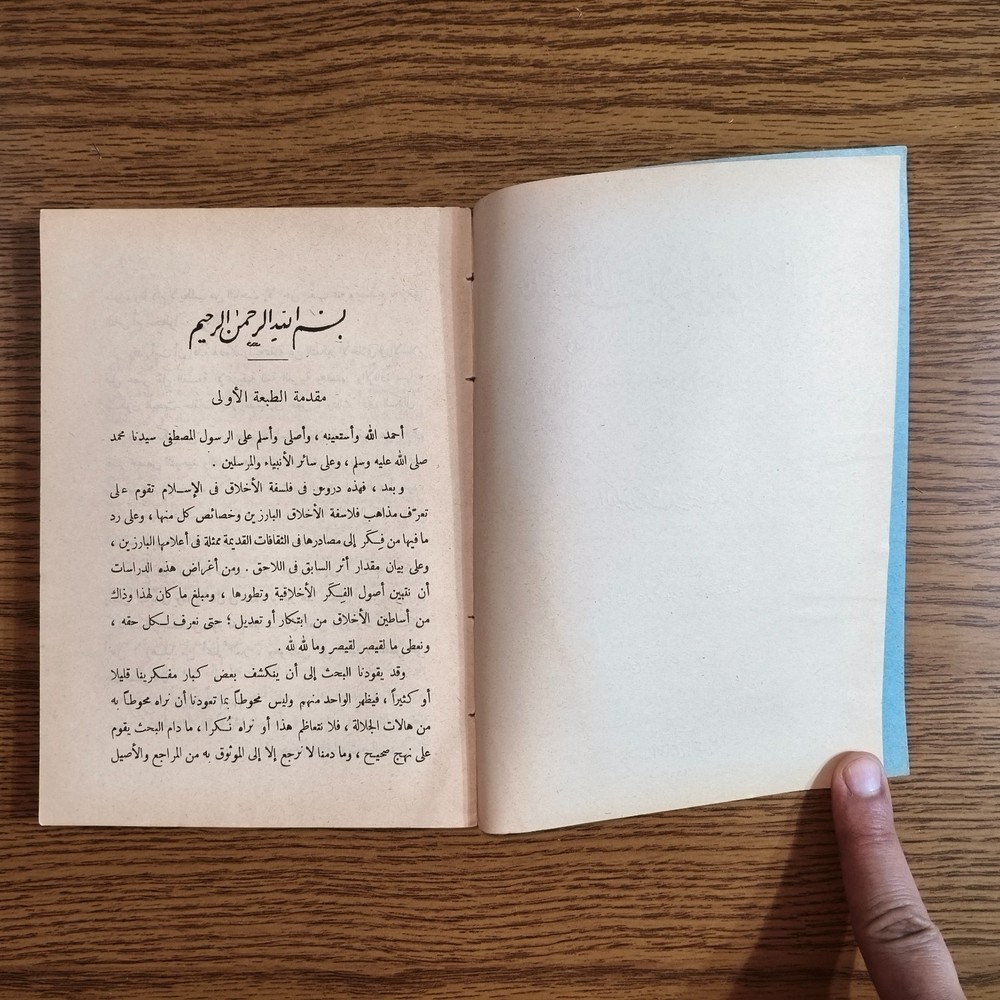 بسم الله الرحمن الرحيم
مقدمة الطبعة الأولى
أحمد الله وأستعينه ، وأصلى وأسلم على الرسول المصطفى سيدنا محمد
صلى الله عليه وسلم ، وعلى سائر الأنبياء والمرسلين .
وبعد ، فهذه دروس فى فلسفة الأخلاق فى الإسلام تقوم على
تعرّف مذاهب فلاسفة الأخلاق البارزين وخصائص كل منها ، وعلى رد
ما فيها من فِكَر إلى مصادرها فى الثقافات القديمة ممثلة فى أعلامها البارزين ،
وعلى بيان مقدار أثر السابق فى اللاحق . ومن أغراض هذه الدراسات
أن نتبين أصول الفِكَر الأخلاقية وتطورها ، ومبلغ ما كان لهذا وذاك
من أساطين الأخلاق من ابتكار أو تعديل ؛ حتى نعرف لكل حقه ،
ونعطى ما لقيصر لقيصر وما لله لله .
وقد يقودنا البحث إلى أن ينكشف بعض كبار مفكرينا قليلا
أو كثيراً ، فيظهر الواحد منهم وليس محوطاً بما تعودنا أن نراه محوطاً به
من هالات الجلالة ، فلا نتعاظم هذا أو نراه نُكرا ، ما دام البحث يقوم
على نهج صحيح ، وما دمنا لا نرجع إلا إلى الموثوق به من المراجع والأصيل